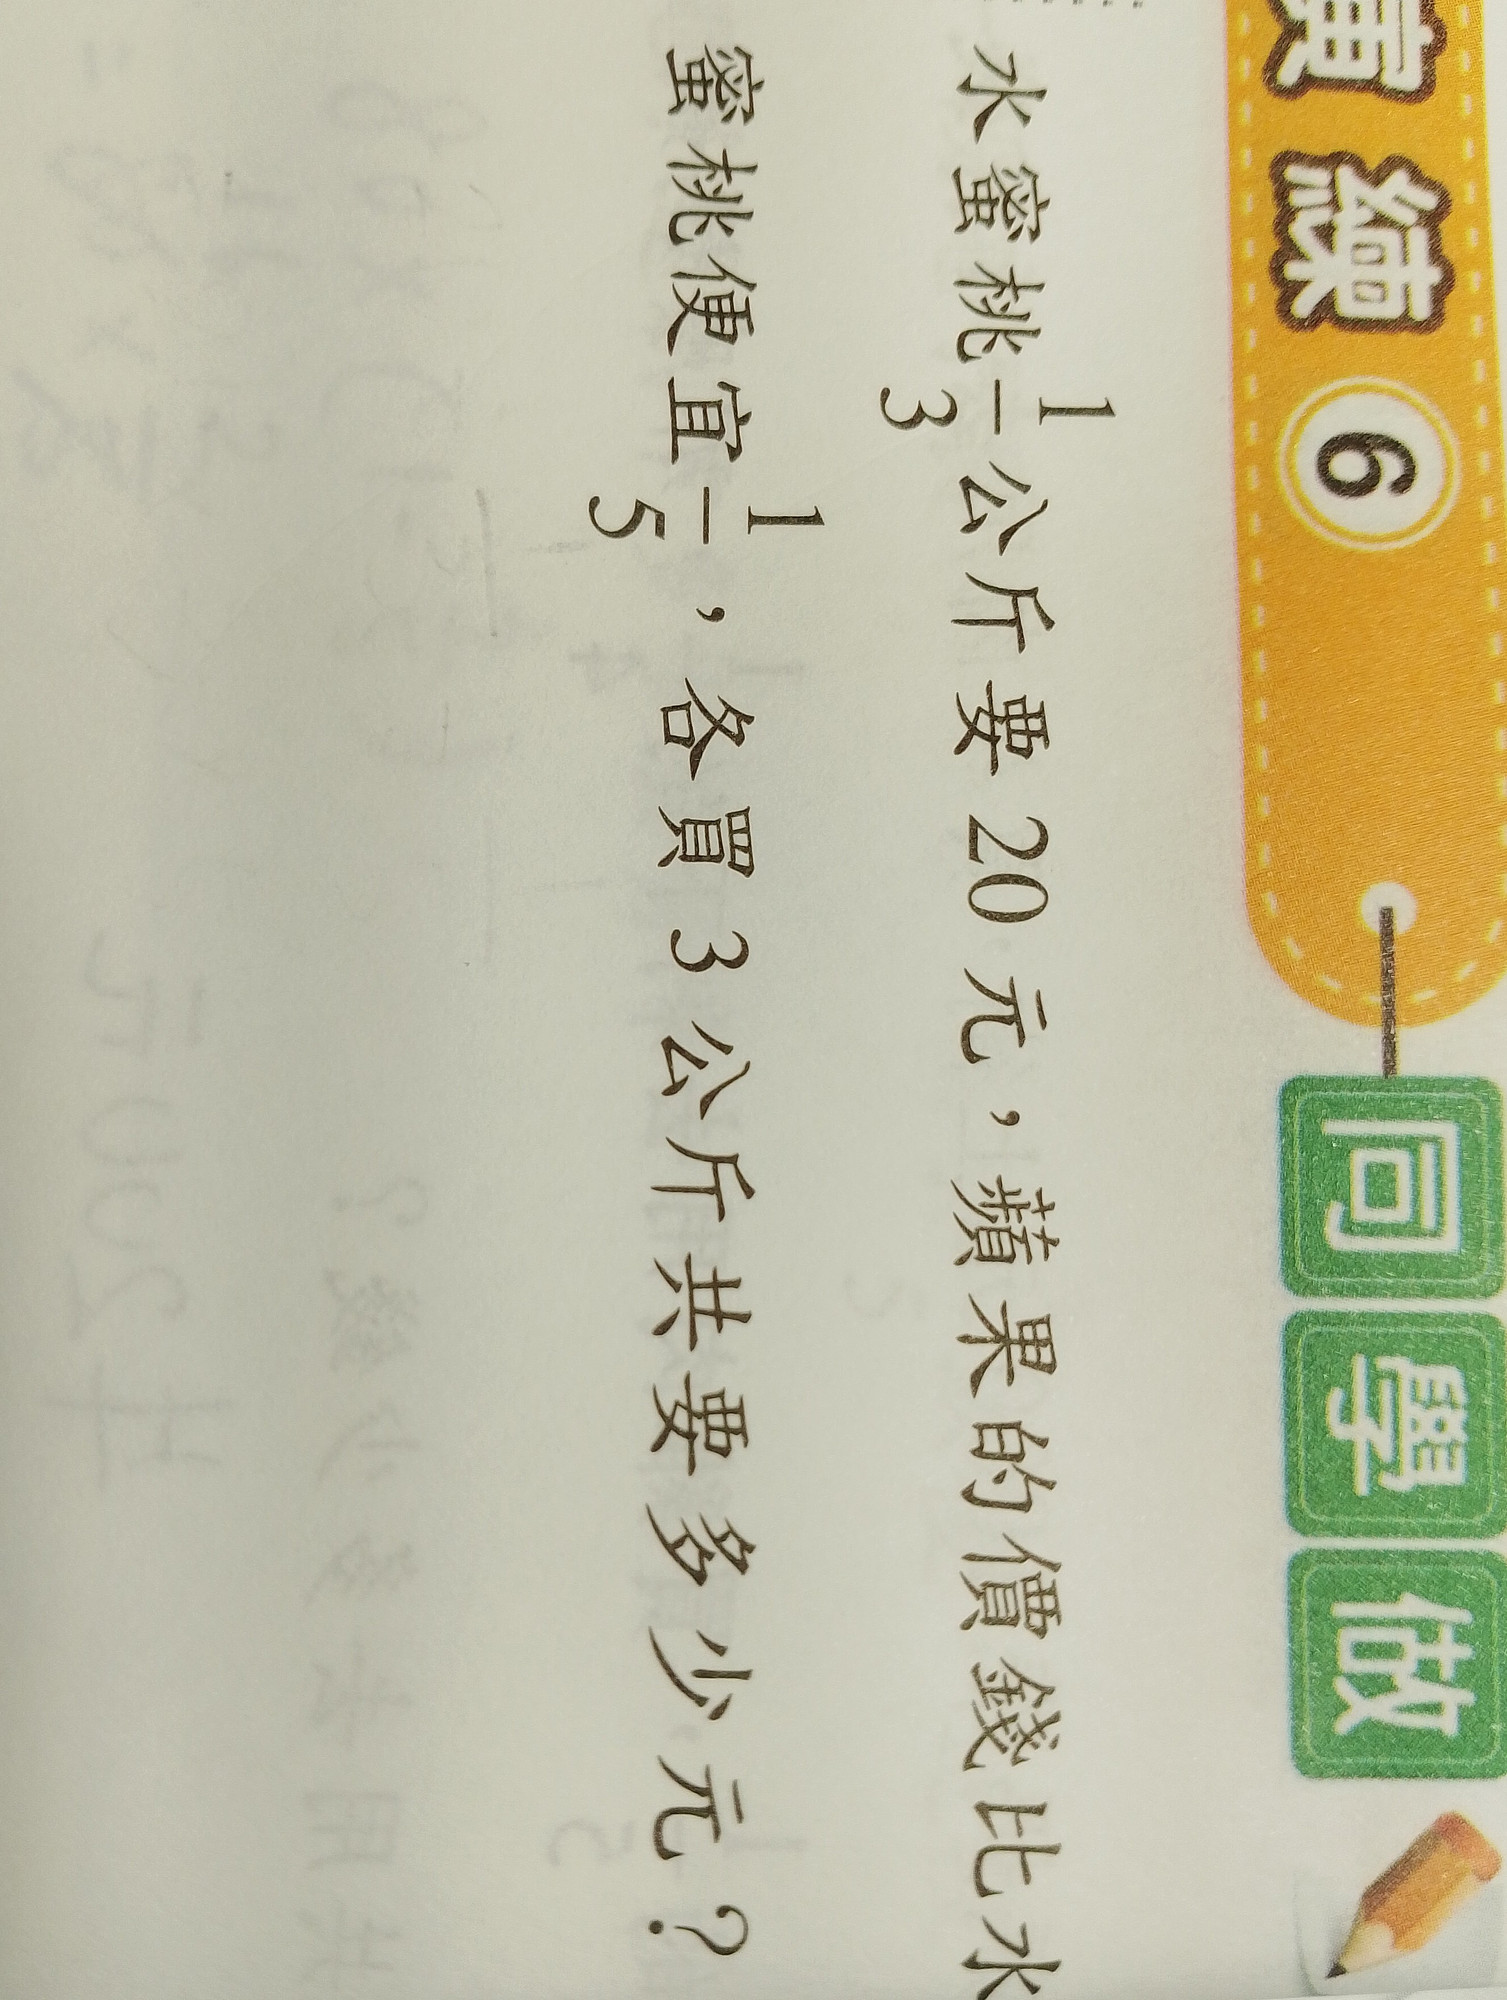 績 6 同學做
水蜜桃 1/3 公斤要 20 元，蘋果的價錢比水
蜜桃便宜 1/5，各買 3 公斤共要多少元？